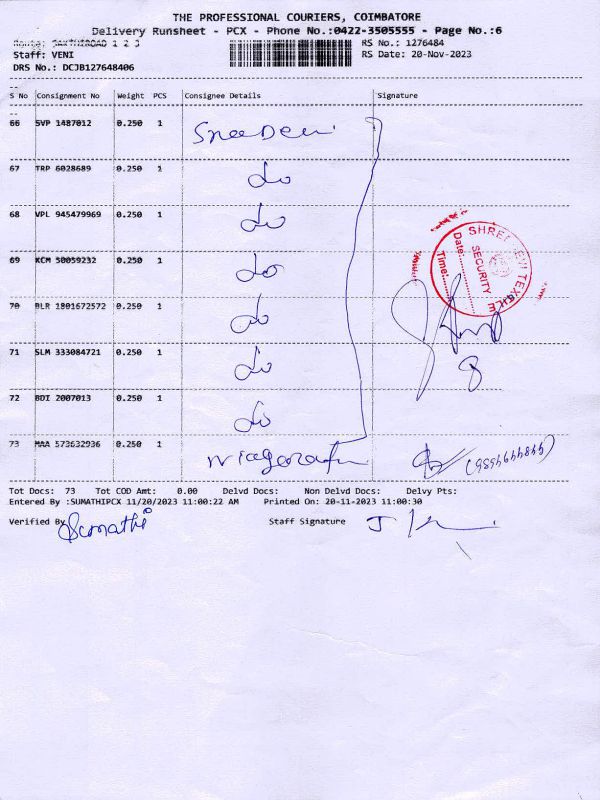 THE PROFESSIONAL COURIERS, COIMBATORE
Delivery Runsheet - PCX - Phone No.:0422-3505555 - Page No.:6
Route: SAKTHIROAD 1 2 3 RS No.: 1276484
Staff: VENI RS Date: 20-Nov-2023
DRS No.: DCJB127648406
S No Consignment No Weight PCS Consignee Details Signature
66 SVP 1487012 0.250 1
67 TRP 6028689 0.250 1 do
68 VPL 945479969 0.250 1 do
69 KCM 50059232 0.250 1 do
70 BLR 1801672572 0.250 1 do
71 SLM 333084721 0.250 1 do
72 BDI 2007013 0.250 1 do
73 MAA 573632936 0.250 1
SHREE DEVI TEXTILE
SECURITY
Date:
Time:
Tot Docs: 73 Tot COD Amt: 0.00 Delvd Docs: Non Delvd Docs: Delvy Pts:
Entered By :SUMATHIPCX 11/20/2023 11:00:22 AM Printed On: 20-11-2023 11:00:30
Verified By Sumathi Staff Signature